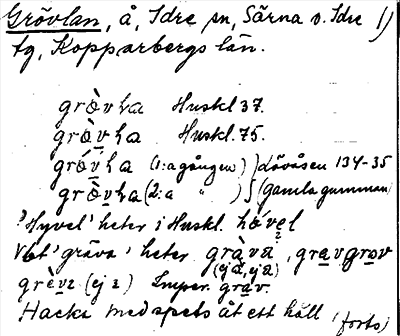 Grövlan, å, Idre sn, Särna o. Idre 1)
tg, Kopparbergs län.
gròvła Huskl. 37.
gròvła Huskl. 75.
grǿvła (1:a gången) } Lövåsen 134-35
gròvła (2:a " ) } (gamla gumman)
'Hyvel' heter i Huskl. hǿvel
Vbt 'gräva' heter gràva, gravgrov
(ej a, ej a)
grèvı (ej ı) Imper. grav.
Hacka med spets åt ett håll (forts)